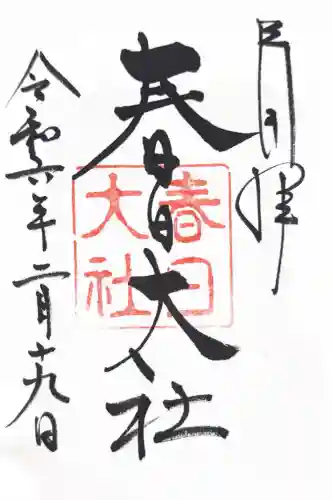 月日拝
春日大社
春日
大社
令和六年二月十九日